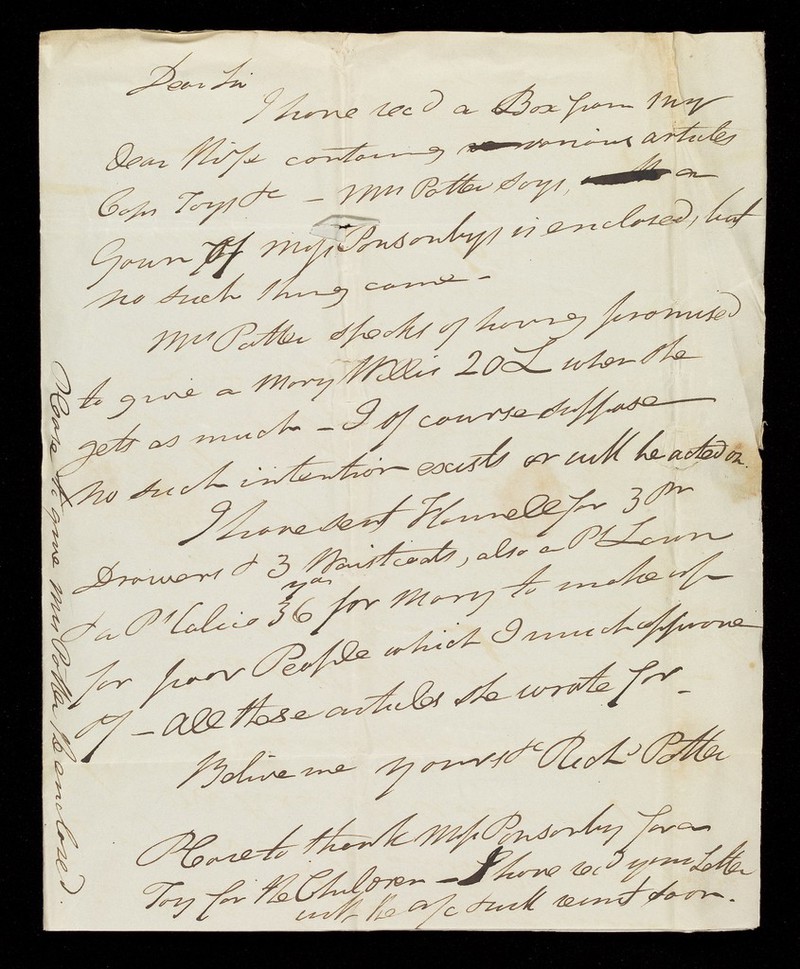 Dear Sir
I have recd a Box from my
dear Wife containg various articles
Caps Toys &c – Mrs Potter says, a
Gown of Miss Ponsonbys is enclosed, but
no such thing came –
Mrs Potter speaks of having promised
to give a Mary Willis 20L when she
gets as much – I of course suppose
no such intention exists or will be acted on.
I have sent Flannell for 3 Pr
Drawers & 3 Waistcoats, also a Ps Lawn
& a Ps Calico 36 yds for Mary to make up
for poor People which I much approve
of – All these articles she wrote for –
Belive me yours &c Richd Potter
Please to thank Miss Ponsonby for a
Toy for the Children – I have recd your Letter
with the a/c & will remit soon.
Please to give Mrs Potter the enclosed.